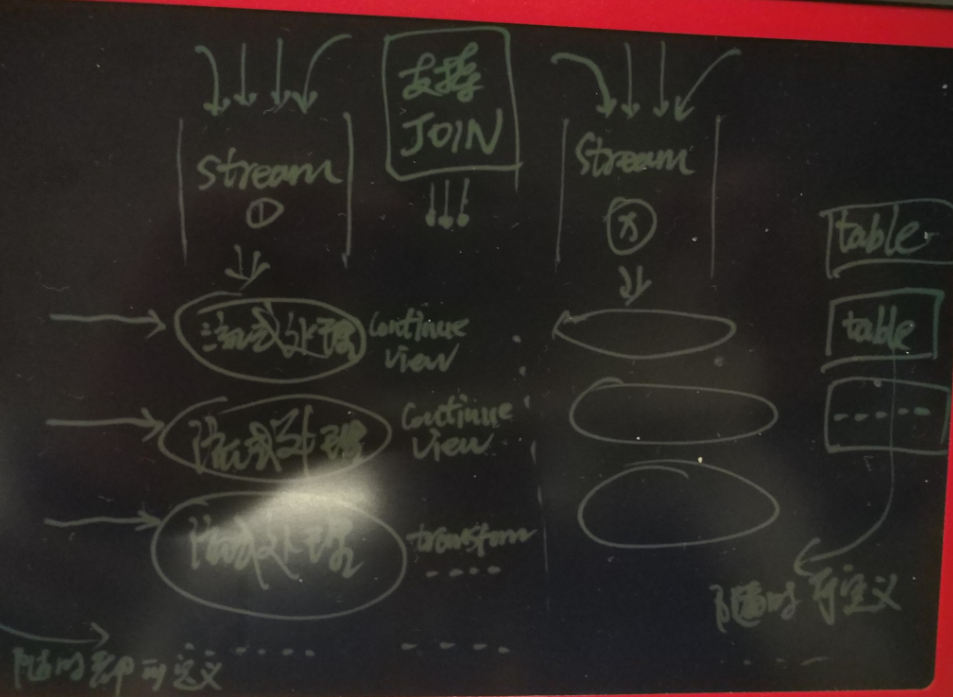 支持
JOIN
stream
①
stream
table
table
流式处理
continue
view
流式处理
Continue
view
流式处理
transform
随时可定义
随时都可定义